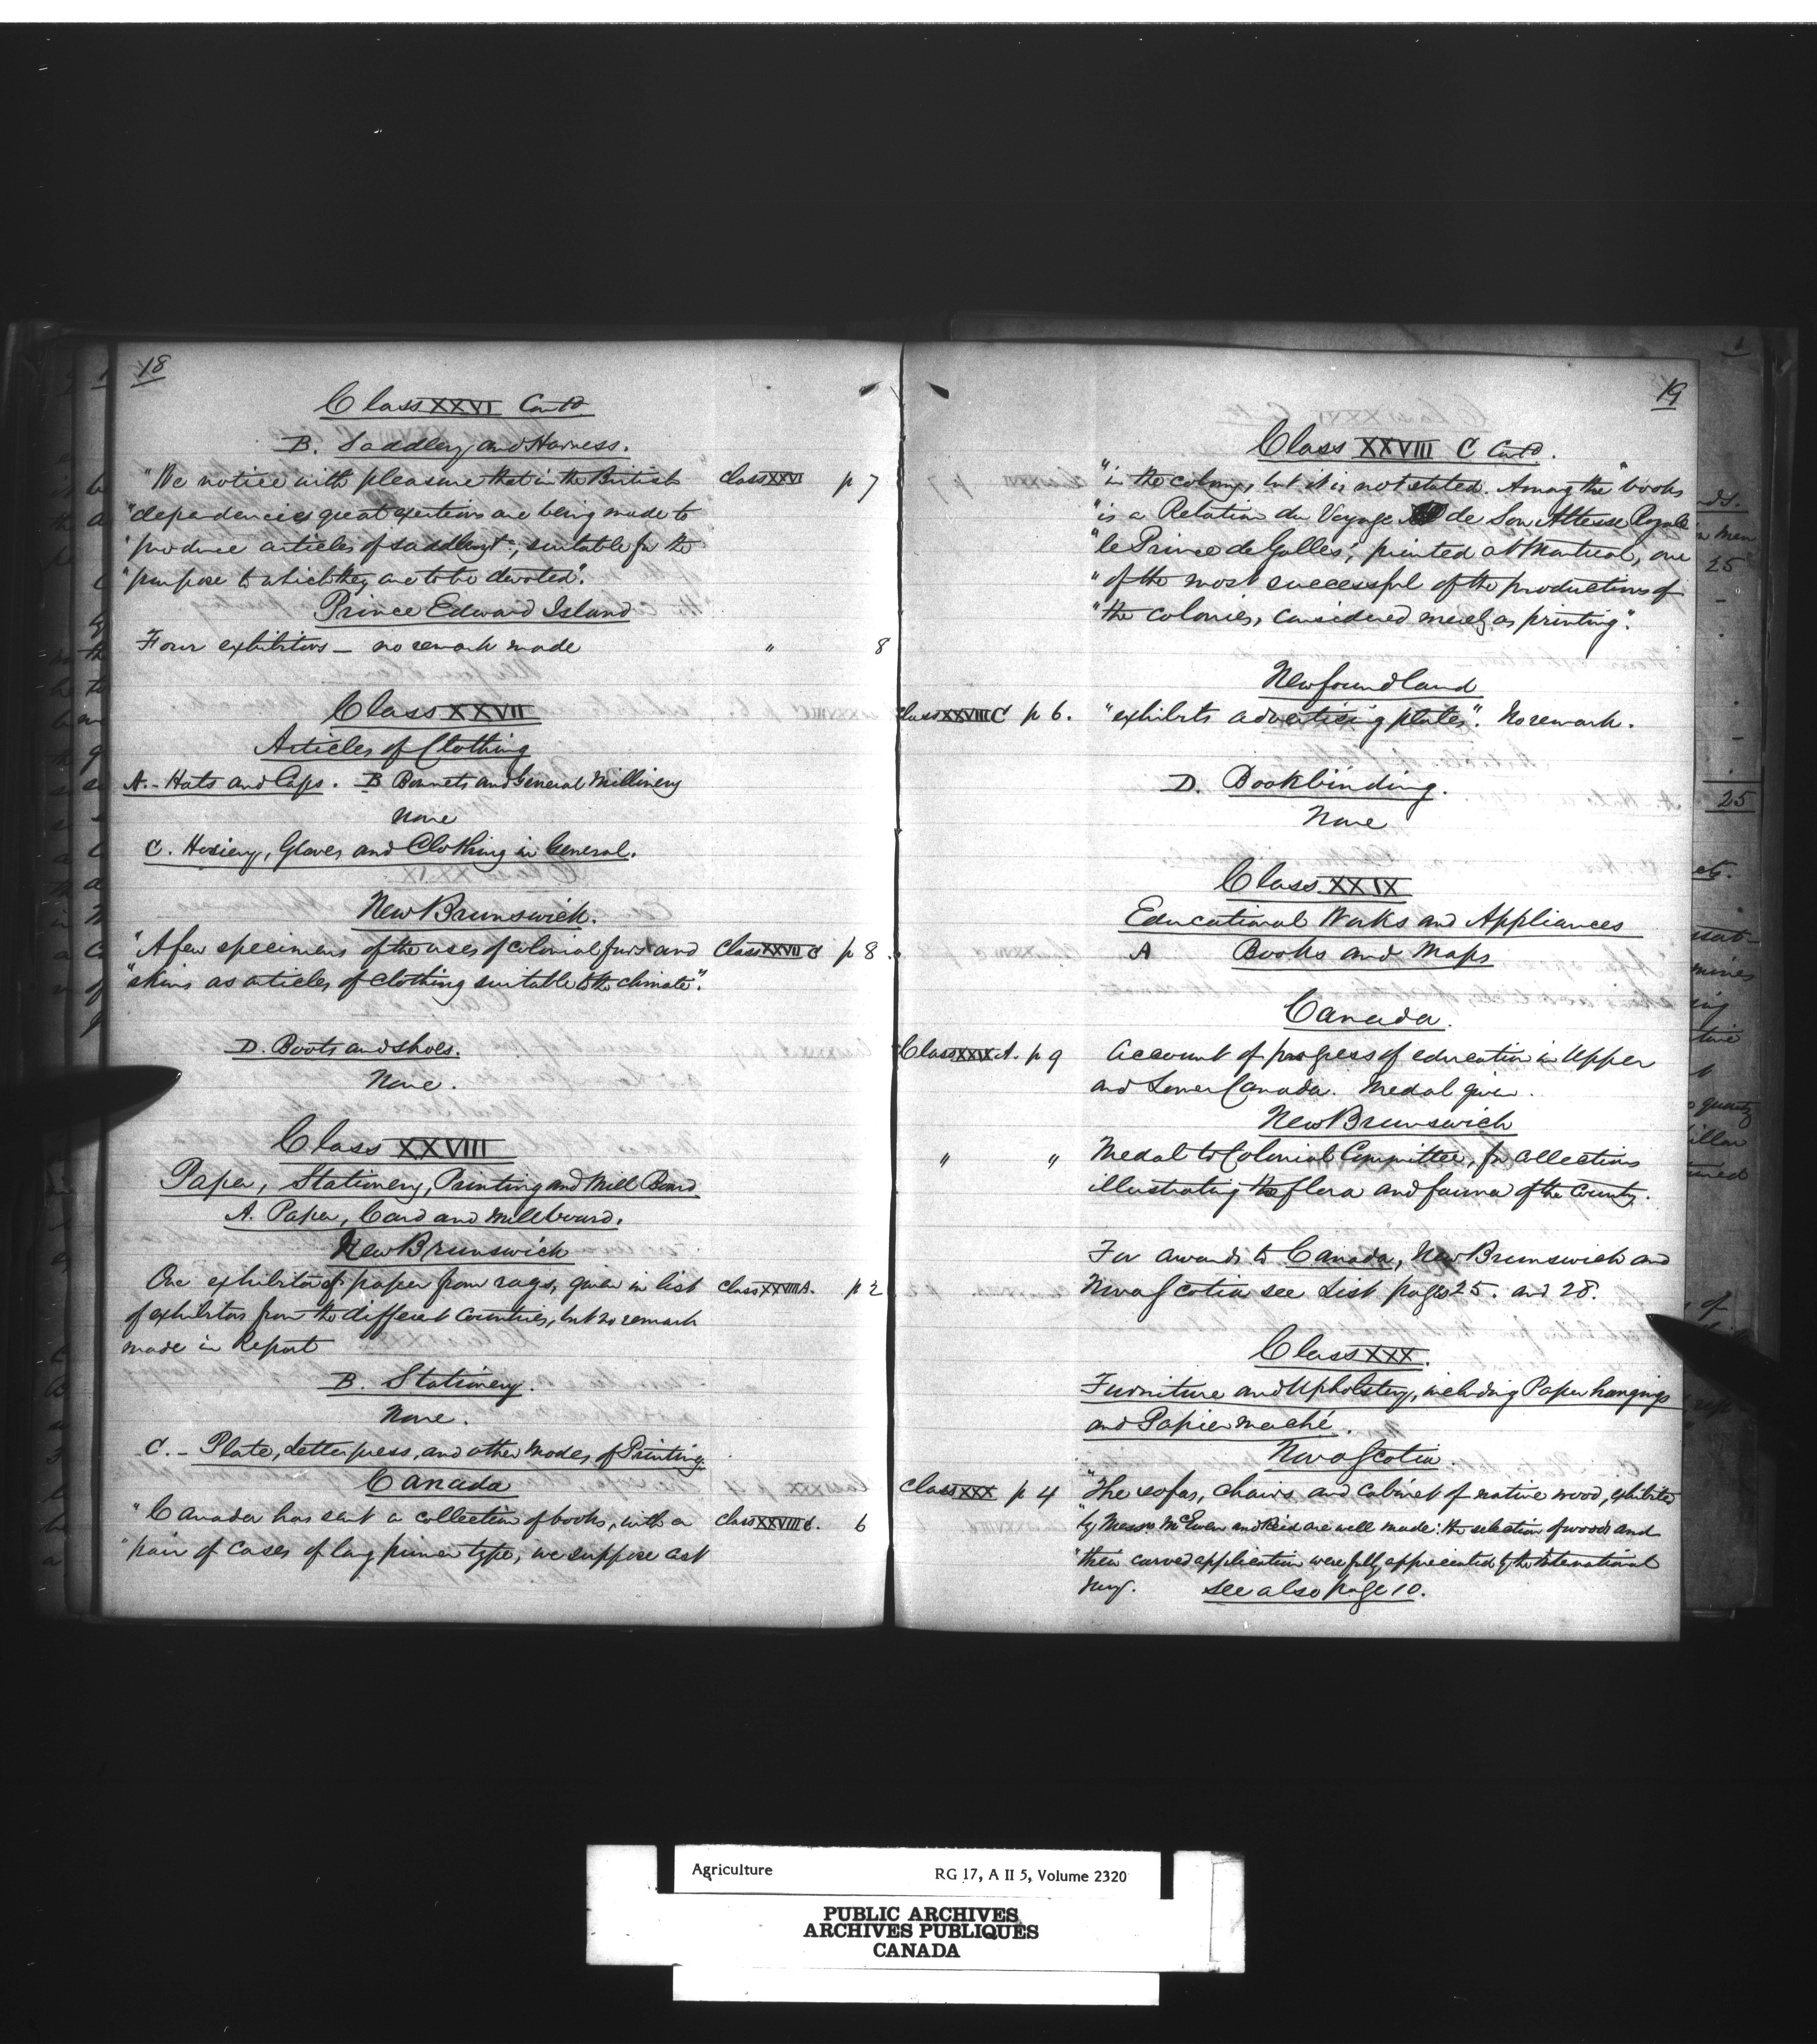 18
Class XXVI Contd.
B. Saddlery and Harness.
"We notice with pleasure that in the British Class XXVI p 7
"dependencies great exertions are being made to
"produce articles of saddlery &c, suitable for the
"purpose to which they are to be devoted".
Prince Edward Island
Four exhibitors - no remark made " 8
Class XXVII
Articles of Clothing
A. - Hats and Caps. B Bonnets and General Millinery
None
C. Hosiery, Gloves and Clothing in General.
New Brunswick.
"A few specimens of the uses of colonial furs and Class XXVII C p 8.
"skins as articles of clothing suitable to the climate".
D. Boots and Shoes.
None.
Class XXVIII
Paper, Stationery, Printing and Mill Board.
A. Paper, Card and Millboard.
New Brunswick
One exhibitor of paper from rags, given in list Class XXVIII A. p 2
of exhibitors from the different Countries, but no remark
made in Report
B. Stationery.
None.
C. - Plate, Letterpress, and other modes of Printing.
Canada
"Canada has sent a collection of books, with a Class XXVIII C. 6
"pair of cases of long primer type, we suppose cast
19
Class XXVIII C Contd.
"in the colony, but it is not stated. Among the books
"is a Relation du Voyage de Son Altesse Royale
"le Prince de Galles", printed at Montreal, one
"of the most successful of the productions of
"the colonies, considered merely as printing".
Newfoundland
Class XXVIII C p 6. "exhibits advertising plates". No remark.
D. Bookbinding.
None
Class XXIX
Educational Works and Appliances
A Books and Maps
Canada.
Class XXIX A. p 9 Account of progress of education in Upper
and Lower Canada. Medal given.
New Brunswick
" " Medal to Colonial Committee, for collections
illustrating the flora and fauna of the County.
For awards to Canada, New Brunswick and
Nova Scotia see List pages 25. and 28.
Class XXX.
Furniture and Upholstery, including Paper hangings
and Papier maché.
Nova Scotia.
Class XXX p 4 "The sofas, chairs and cabinet of native wood, exhibited
"by Messrs McEwen and Reid are well made: the selection of woods and
"their carved application were fully appreciated by the International
Jury. See also page 10.
Agriculture RG 17, A II 5, Volume 2320
PUBLIC ARCHIVES
ARCHIVES PUBLIQUES
CANADA